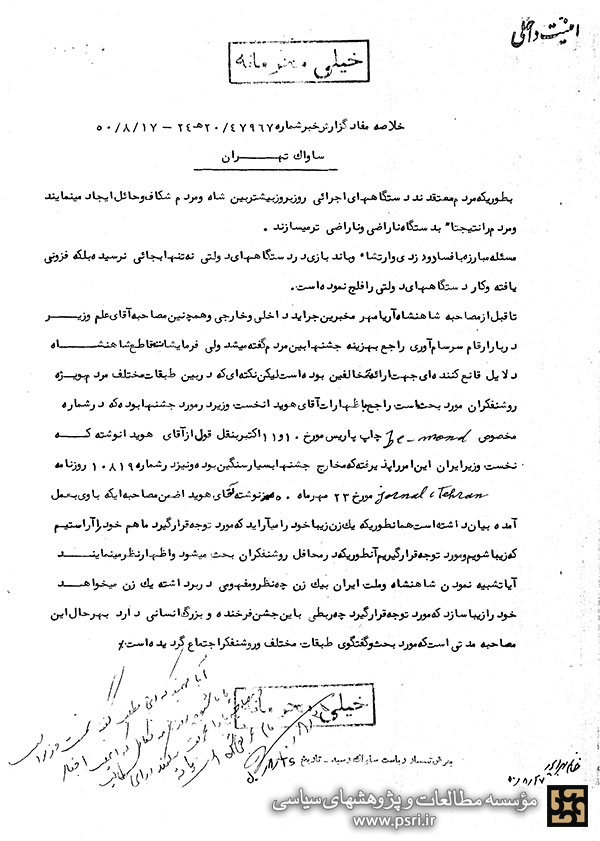 امنیت داخلی
خیلی محرمانه
خلاصه مفاد گزارش خبر شماره ۲۰/۴۷۹۶۷هـ۲۴ – ۵۰/۸/۱۷
ساواك تهــران
بطوریکه مردم معتقدند دستگاههای اجرائی روز بروز بیشتر بین شاه و مردم شکاف و حائل ایجاد مینمایند
و مردم را نتیجتا" بدستگاه ناراضی و ناراضی تر میسازند .
مسئله مبارزه با فساد و دزدی و ارتشاء و باند بازی در دستگاههای دولتی نه تنها بجائی نرسیده بلکه فزونی
یافته و کار دستگاههای دولتی را فلج نموده است .
تا قبل از مصاحبه شاهنشاه آریامهر مخبرین جراید داخلی و خارجی و همچنین مصاحبه آقای علم وزیــر
دربار ارقام سرسام آوری راجع بهزینه جشنها بین مردم گفته میشد ولی فرمایشات قاطع شاهنشــاه
دلایل قانع کننده ای جهت ارائه بمخالفین بوده است لیکن نکته ای که در بین طبقات مختلف مردم بویژه
روشنفکران مورد بحث است راجع باظهارات آقای هویدا نخست وزیر در مورد جشنها بوده که در شماره
مخصوص Le-mond چاپ پاریس مورخ ۱۰ و ۱۱ اکتبر بنقل قول از آقای هویدا نوشته کــه
نخست وزیر ایران این امر را پذیرفته که مخارج جشنها بسیار سنگین بوده و نیز در شماره ۱۰۸۱۹ روزنامه
jornal c Tehran مورخ ۲۳ مهر ماه ۵۰ نوشته آقای هویدا ضمن مصاحبه ایکه با وی بعمل
آمده بیان داشته است همانطوریکه یك زن زیبا خود را میآراید که مورد توجه قرار گیرد ما هم خود را آراستیم
که زیبا شویم و مورد توجه قرار گیریم آنطوریکه در محافل روشنفکران بحث میشود و اظهار نظر مینماینــد
آیا تشبیه نمودن شاهنشاه و ملت ایران بیك زن چه نظر و مفهومی در بر داشته یك زن میخواهــد
خود را زیبا سازد که مورد توجه قرار گیرد چه ربطی باین جشن فرخنده و بزرگ انسانی دارد بهر حال این
مصاحبه مدتی است که مورد بحث و گفتگوی طبقات مختلف و روشنفکر اجتماع گردیده است٪
خیلی محرمانه
بعرض تیمسار ریاست ساواك رسید – تاریخ
مؤسسه مطالعات و پژوهشهای سیاسی
www.psri.ir